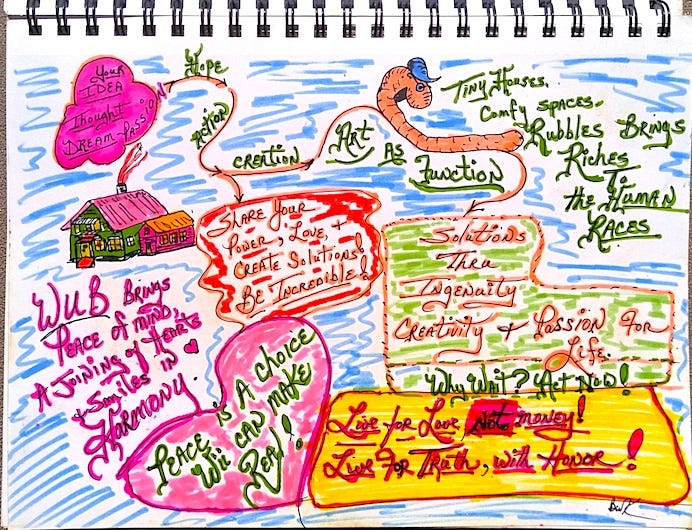 Your
IDEA
Thought
DREAM-PASS'ON
HOPE
ACTION
CREATION
ART
AS
FUNCTION
TINY HOUSES,
COMFY SPACES.
RUBBLES BRINGS
RICHES
TO
THE HUMAN
RACES
SHARE YOUR
POWER, LOVE, +
CREATE SOLUTIONS!
BE INCREDIBLE!
SOLUTIONS
THRU
INGENUITY
CREATIVITY + PASSION FOR
LIFE.
WHY WAIT? ACT NOW!
WUB BRINGS
PEACE OF MIND,
A JOINING OF HEARTS
+ SMILES IN
HARMONY.
PEACE IS A CHOICE
WII CAN MAKE
REAL!
LIVE FOR LOVE NOT MONEY!
LIVE FOR TRUTH, WITH HONOR!